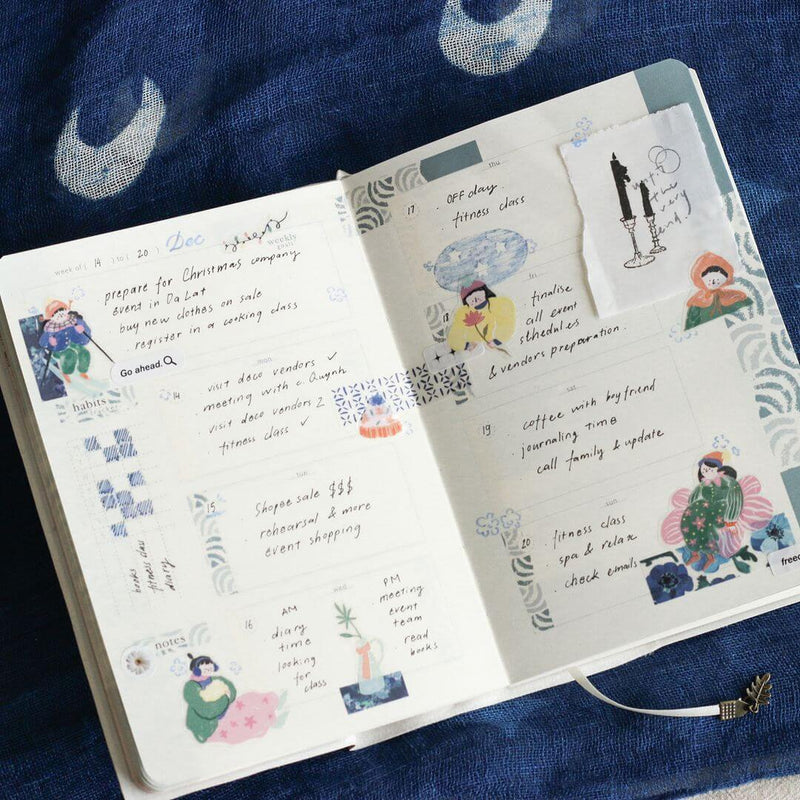 week of ( 14 ) to ( 20 ) Dec
weekly
goals
prepare for Christmas company
event in Da Lat
. buy new clothes on sale
. register in a cooking class
Go ahead.
habits
tracker
books
fitness class
diary
mon
14
visit deco vendors ✓
meeting with c. Quynh
. visit deco vendors 2
. fitness class ✓
tue
15
Shopee sale $$$
. rehearsal & more
event shopping
wed
16
AM
. diary
time
. looking
for
class
PM
. meeting
event
team
. read
books
notes
thu
17
. OFF day
. fitness class
fri
18
. finalise
all event
schedules
& vendors preparation.
sat
19
. coffee with boyfriend
. journaling time
. call family & update
sun
20
. fitness class
. spa & relax
. check emails
until
the
very
end.